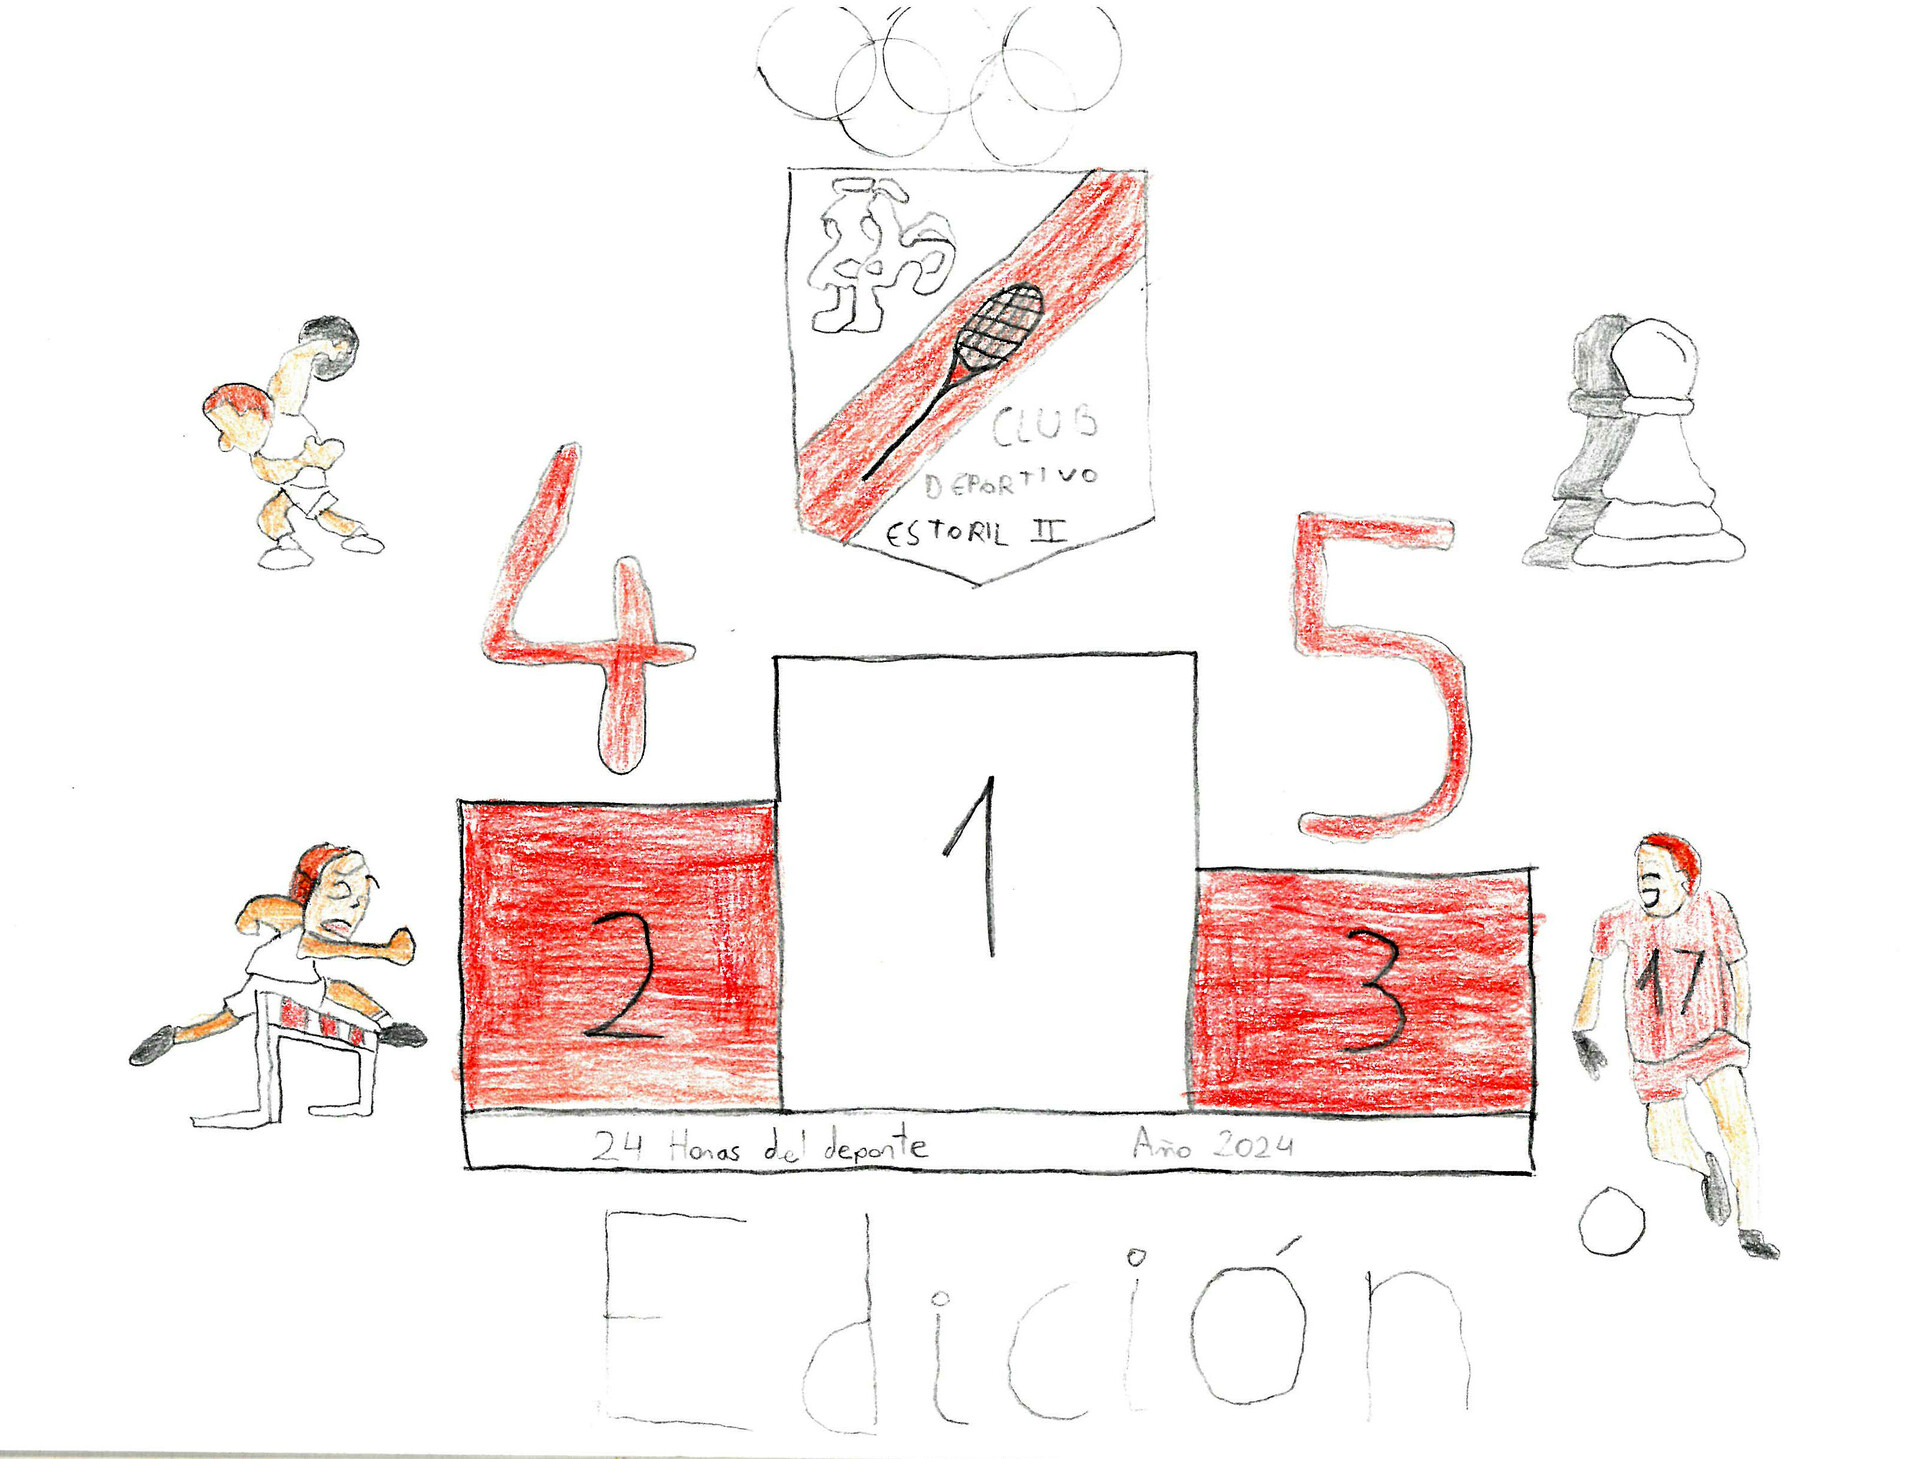 CLUB
DEPORTIVO
ESTORIL II
4 5
1
2
3
17
24 Horas del deporte Año 2024
Edición